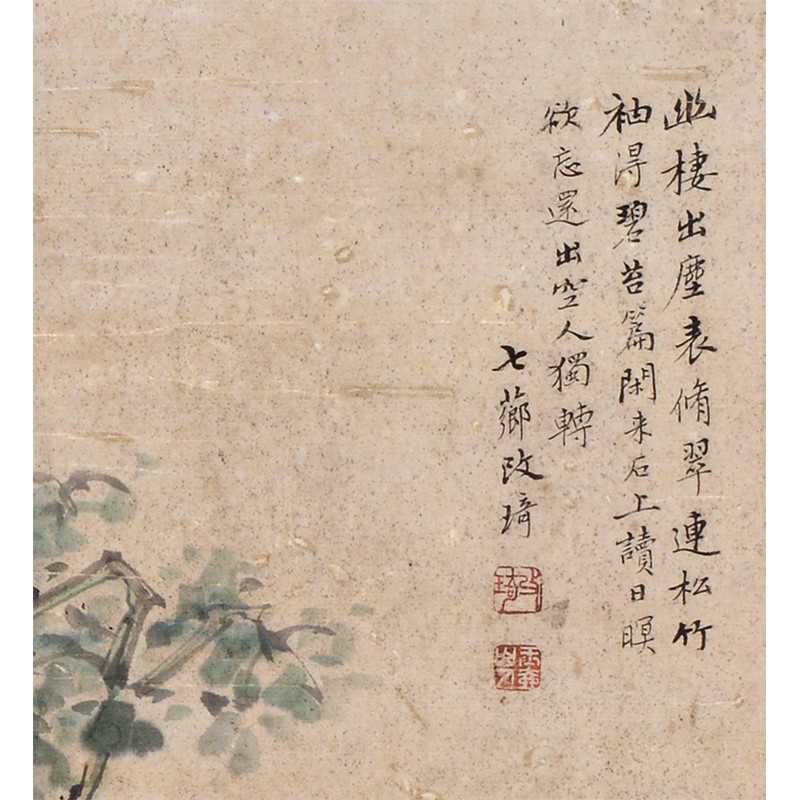 幽棲出塵表脩翠連松竹
袖得碧苔篇閑来石上讀日暝
欲忘還出空人獨轉
七薌改琦
改琦